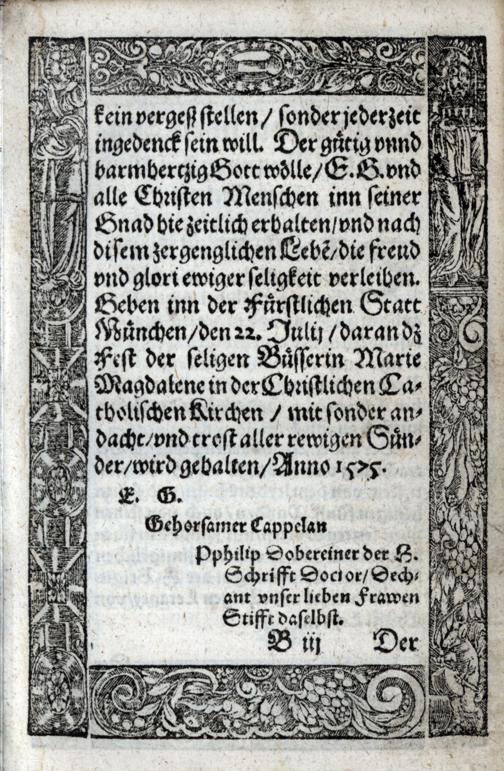 kein vergeß stellen / sonder jederzeit
ingedenck sein will. Der gütig vnnd
barmhertzig Gott wölle / E. G. vnd
alle Christen Menschen inn seiner
Gnad hie zeitlich erhalten / vnd nach
disem zergenglichen Lebē / die freud
vnd glori ewiger seligkeit verleihen.
Geben inn der Fürstlichen Statt
München / den 22. Julij / daran dz
Fest der seligen Büsserin Marie
Magdalene in der Christlichen Ca-
tholischen Kirchen / mit sonder an-
dacht / vnd trost aller rewigen Sün-
der / wird gehalten / Anno 1575.
E. G.
Gehorsamer Cappelan
Pphilip Dobereiner der H.
Schrifft Doctor / Dech-
ant vnser lieben Frawen
Stifft daselbst.
B iij Der